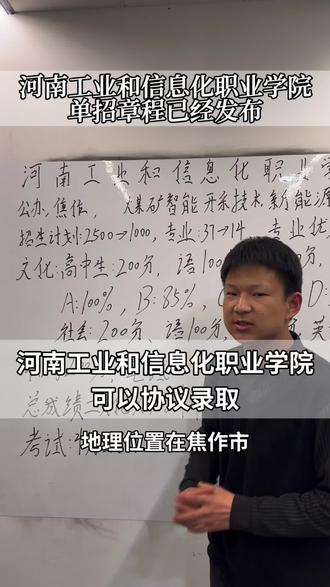 河南工业和信息化职业学院
单招章程已经发布
河南工业和信息化职业学
公办,焦作,煤矿智能开采技术,新能源
招生计划:2500→1000,专业:37→14,专业优
文化:高中生:200分,语100
A:100%,B:85%,
D:
社会:200分,语100分,
英
河南工业和信息化职业学院
可以协议录取
总成绩
考试:
地理位置在焦作市